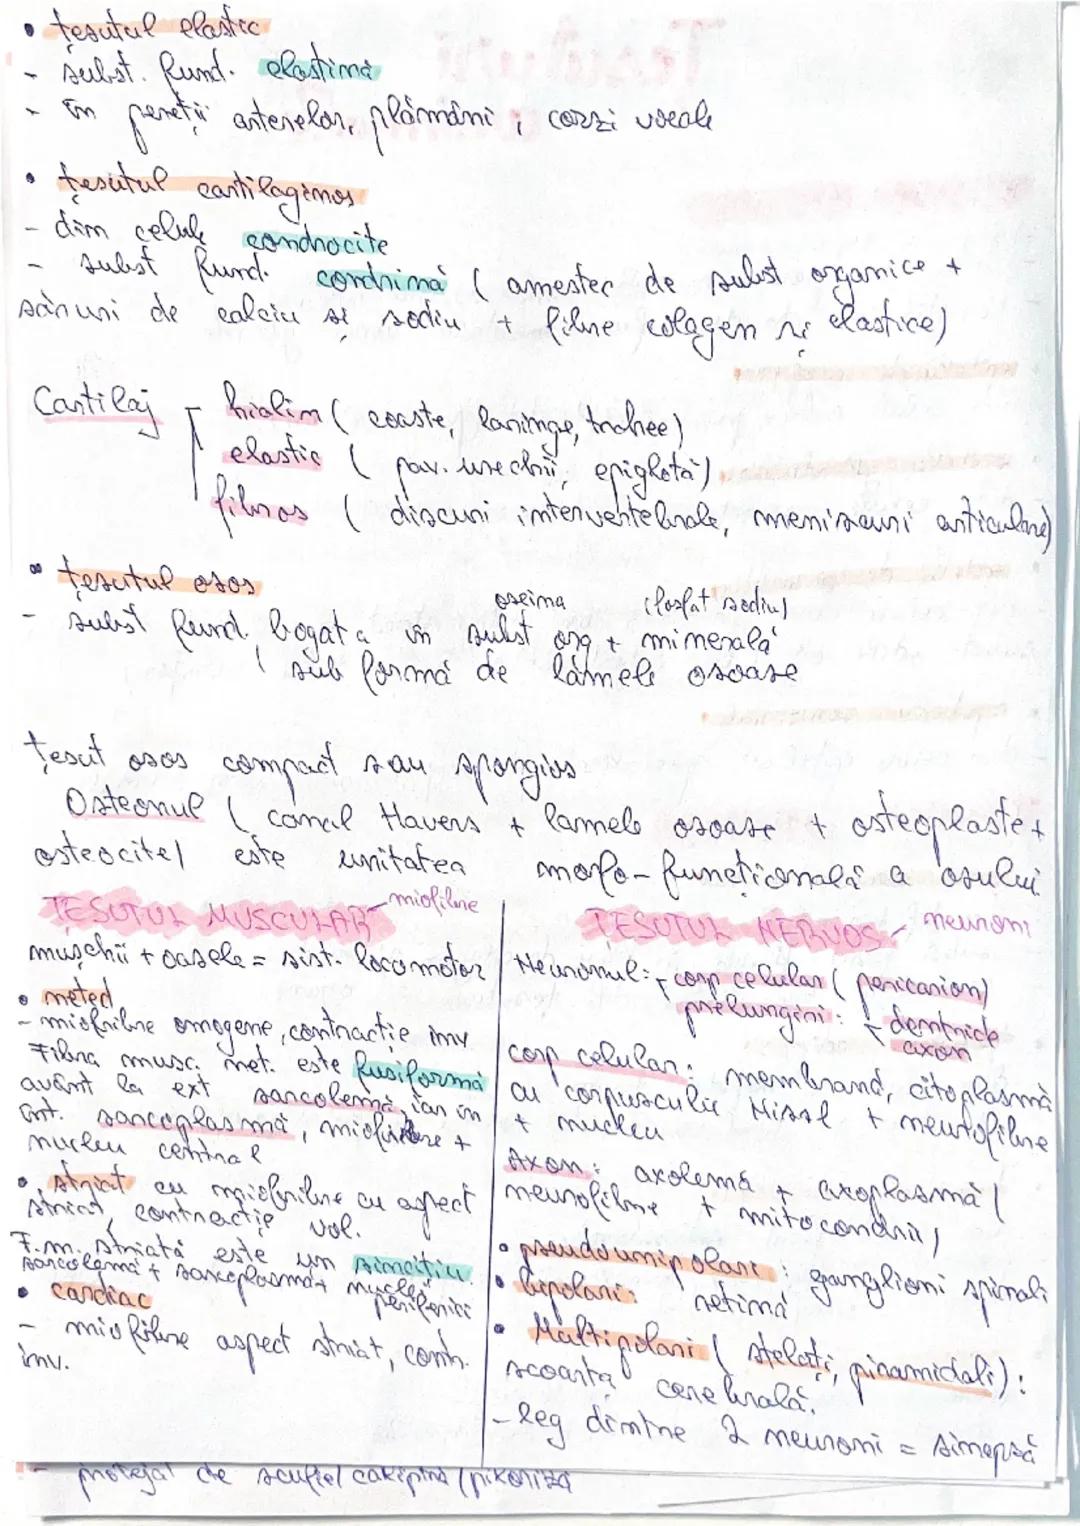 • țesutul elastic
- subst. fund. elastină
- în pereții arterelor, plămâni, corzi vocale
• țesutul cartilaginos
- din celule condrocite
- subst fund. condrină ( amestec de subst organice +
săruri de calciu și sodiu + fibre colagen și elastice)
Cartilaj
hialin ( coaste, laringe, trahee)
elastic ( pav. urechii, epiglotă)
fibros ( discuri intervertebrale, meniscuri articulare)
• țesutul osos
oseina (fosfat sodiu)
- subst fund. bogata in subst org + minerală
sub formă de lamele osoase
țesut osos compact sau spongios
Osteonul ( canal Havers + lamele osoase + osteoplaste +
osteocite) este unitatea morfo-funcțională a osului
ȚESUTUL MUSCULAR - miofibre
mușchii + oasele = sist. locomotor
• neted
- miofibrile omogene, contracție inv
Fibra musc. net. este fusiformă
având la ext sarcolemă, iar în
int. sarcoplasmă, miofibre +
nucleu central
• striat cu miofibrile cu aspect
striat, contracție vol.
F.m. striată este un sincițiu.
sarcolemă + sarcoplasmă + nuclei
periferici
• cardiac
- miofibre aspect striat, contr.
inv.
ȚESUTUL NERVOS - neuroni
Neuronul: - corp celular ( pericarion)
prelungiri: - dentride
axon
corp celular: membrană, citoplasmă
cu corpusculii Nissl + neurofibre
+ nucleu
Axon: axolemă + axoplasmă (
neurofibre + mitocondrii)
• pseudounipolari: ganglioni spinali
• bipolari: retină
• Multipolari ( stelați, piramidali):
scoarța cerebrală.
- leg dintre 2 neuroni = sinapsă
- protejat de scufie/